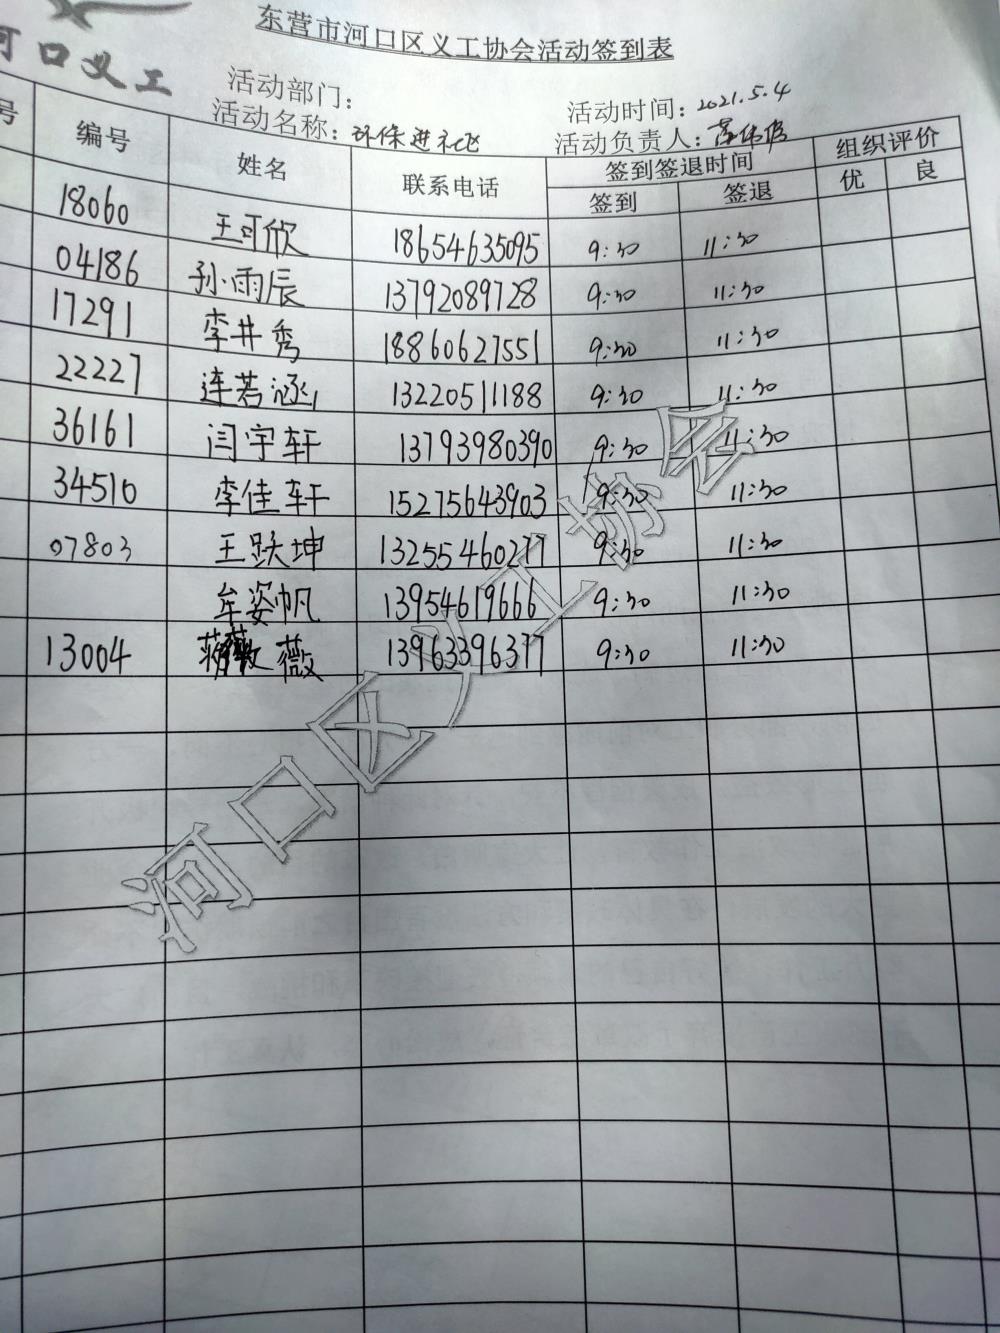 东营市河口区义工协会活动签到表
河口义工
活动部门：
活动时间：2021.5.4
活动名称：环保进社区
活动负责人：
号 编号 姓名 联系电话 签到签退时间 组织评价
签到 签退 优 良
18060 王可欣 18654635095 9:30 11:30
04186 孙雨辰 13792089728 9:30 11:30
17291 李井秀 18860627551 9:30 11:30
22227 连若涵 13220511188 9:30 11:30
36161 闫宇轩 13793980390 9:30 11:30
34510 李佳轩 15275643903 9:30 11:30
07803 王跃坤 13255460277 9:30 11:30
牟姿帆 13954619666 9:30 11:30
13004 薇 13963396377 9:30 11:30
河口区义工协会